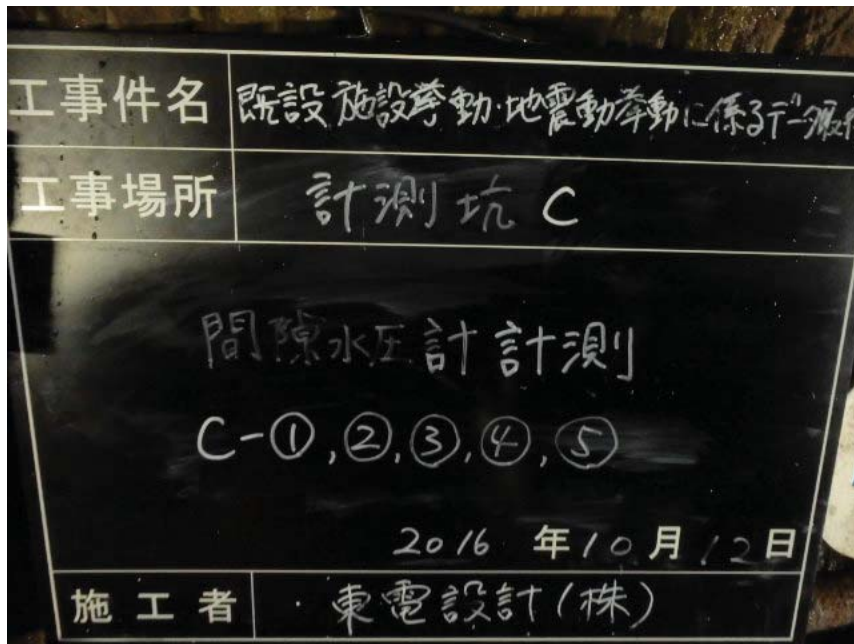 工事件名 既設施設挙動・地震動挙動に係るデータ
工事場所 計測坑 C
間隙水圧計計測
C-①,②,③,④,⑤
2016 年10月12日
施工者 ・東電設計(株)